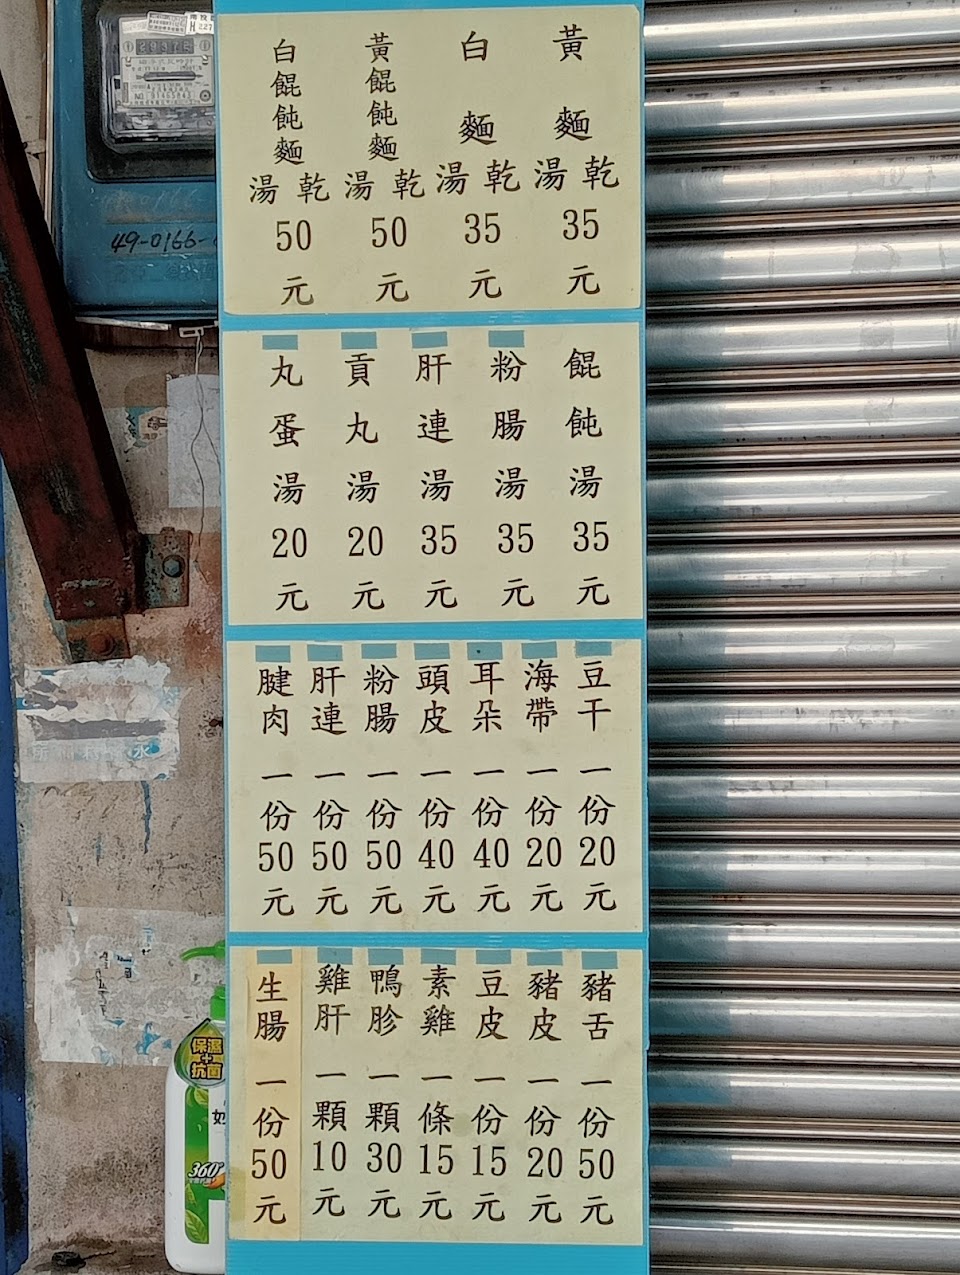 黃麵 湯 乾 35元
白麵 湯 乾 35元
黃餛飩麵 湯 乾 50元
白餛飩麵 湯 乾 50元
餛飩湯35元
粉腸湯35元
肝連湯35元
貢丸湯20元
丸蛋湯20元
豆干一份20元
海帶一份20元
耳朵一份40元
頭皮一份40元
粉腸一份50元
肝連一份50元
腱肉一份50元
豬舌一份50元
豬皮一份20元
豆皮一份15元
素雞一條15元
鴨胗一顆30元
雞肝一顆10元
生腸一份50元
49-0166-
保濕
+
抗菌
360°